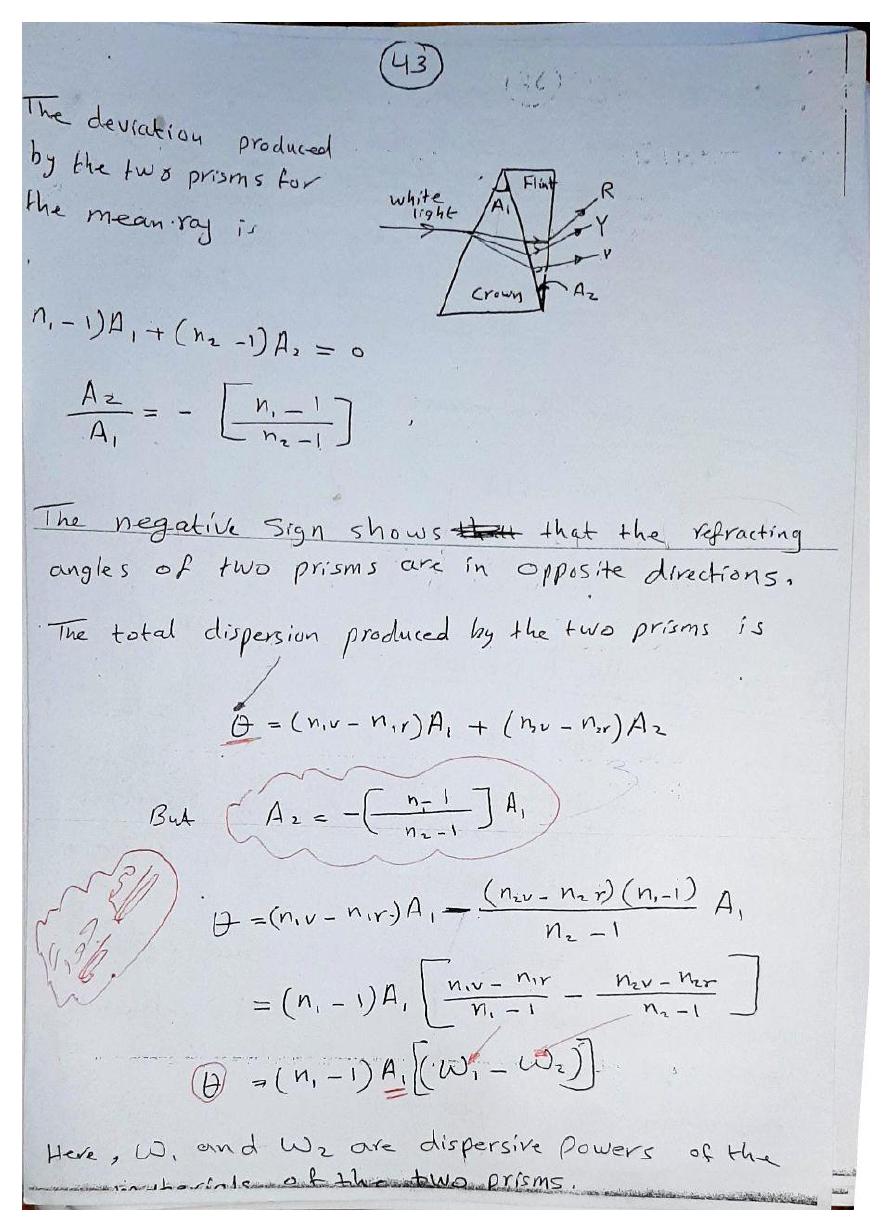 43
The deviation produced
by the two prisms for
the mean ray is
white
light
Flint
A₁
Crown
R
Y
V
A₂
n₁ - 1)A₁ + (n₂ - 1)A₂ = 0
A₂/A₁ = - [n₁ - 1 / n₂ - 1]
The negative Sign shows that the refracting
angles of two prisms are in opposite directions.
The total dispersion produced by the two prisms is
θ = (n₁v - n₁r)A₁ + (n₂v - n₂r)A₂
But A₂ = -[n₁-1 / n₂-1] A₁
θ = (n₁v - n₁r)A₁ - (n₂v - n₂r)(n₁-1) / n₂ - 1 A₁
= (n₁ - 1)A₁ [n₁v - n₁r / n₁ - 1 - n₂v - n₂r / n₂ - 1]
θ = (n₁ - 1)A₁[(ω₁ - ω₂)]
Here, ω₁ and ω₂ are dispersive Powers of the
of the two prisms.